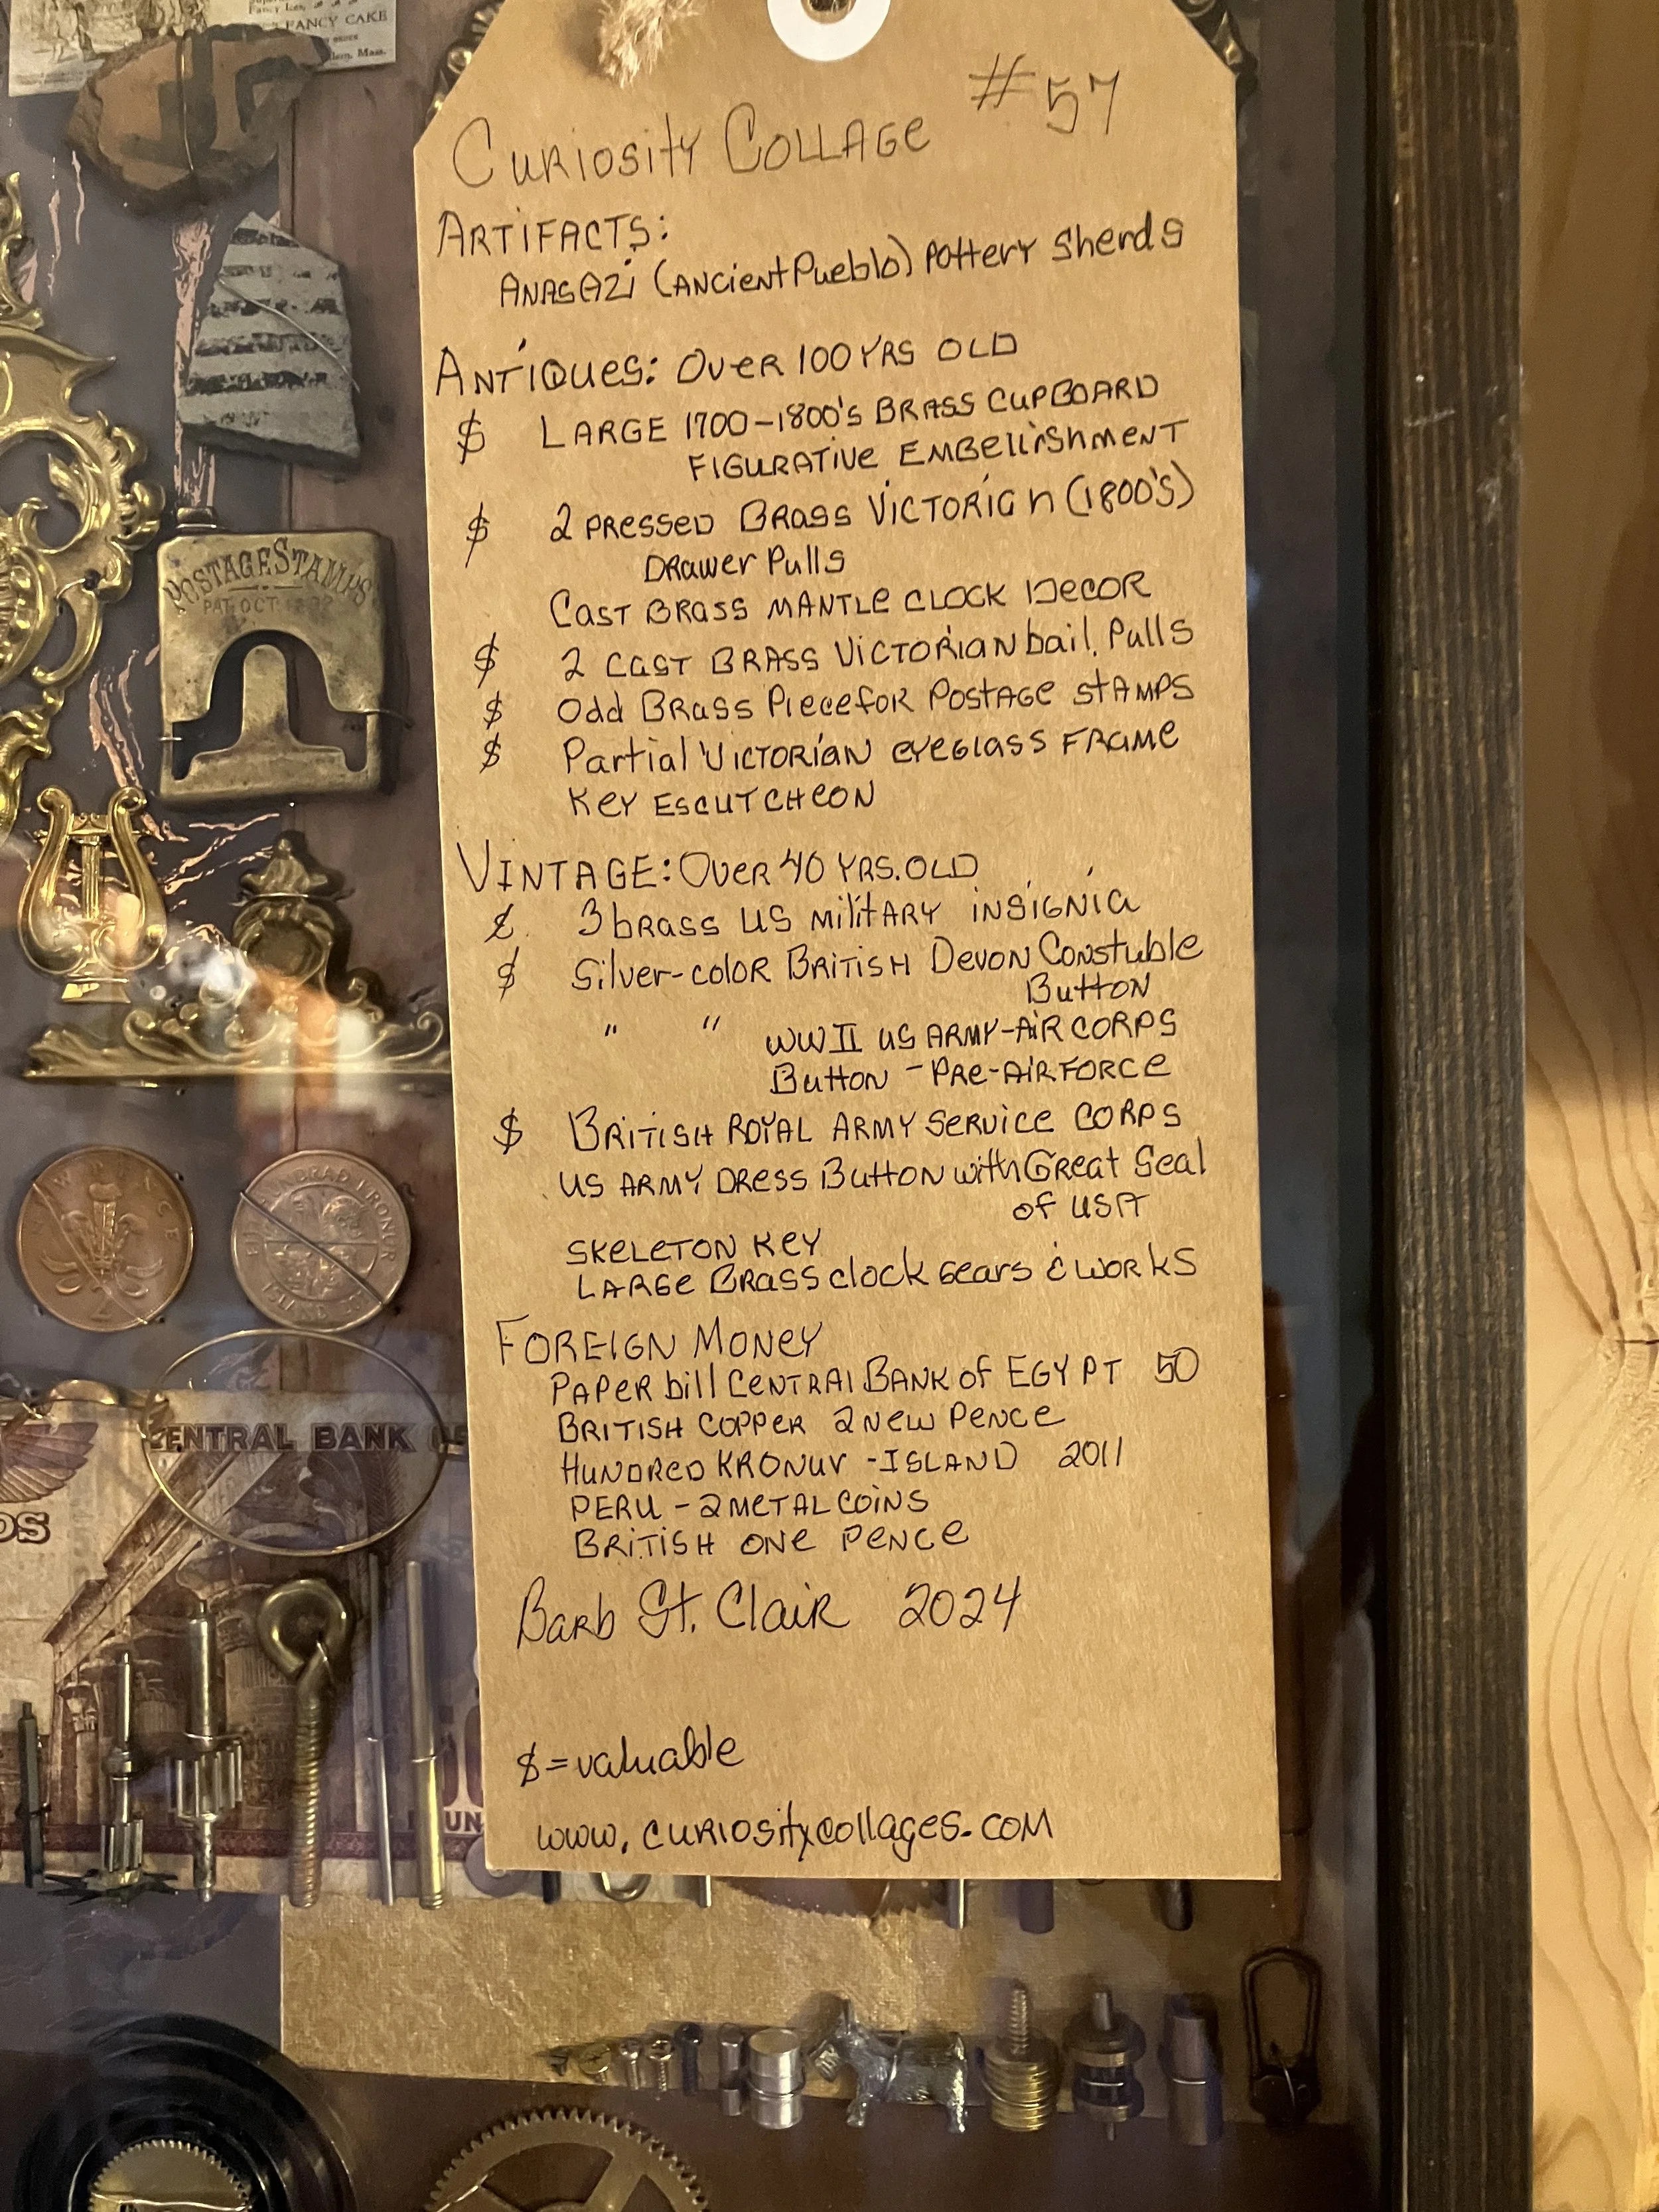 FANCY CAKE
Mass.
#57
Curiosity Collage
Artifacts:
Anasazi (Ancient Pueblo) Pottery Sherds
Antiques: Over 100 yrs old
$ Large 1700-1800's Brass Cupboard
Figurative Embellishment
$ 2 pressed Brass Victorian (1800's)
Drawer Pulls
Cast Brass Mantle Clock Decor
$ 2 Cast Brass Victorian bail Pulls
$ Odd Brass Piece for Postage Stamps
$ Partial Victorian eyeglass frame
Key Escutcheon
Vintage: Over 40 yrs. old
$ 3 brass US military insignia
$ Silver-color British Devon Constuble
Button
" " WWII US Army-Air Corps
Button - Pre-Airforce
$ British Royal Army Service Corps
US Army Dress Button with Great Seal
of USA
Skeleton Key
Large Brass clock gears & works
Foreign Money
Paper bill Central Bank of Egypt 50
British copper 2 New Pence
Hundred Kronur - Island 2011
Peru - 2 metal coins
British one pence
Barb St. Clair 2024
$ = valuable
www.curiositycollages.com
POSTAGE STAMPS
PAT. OCT
CENTRAL BANK